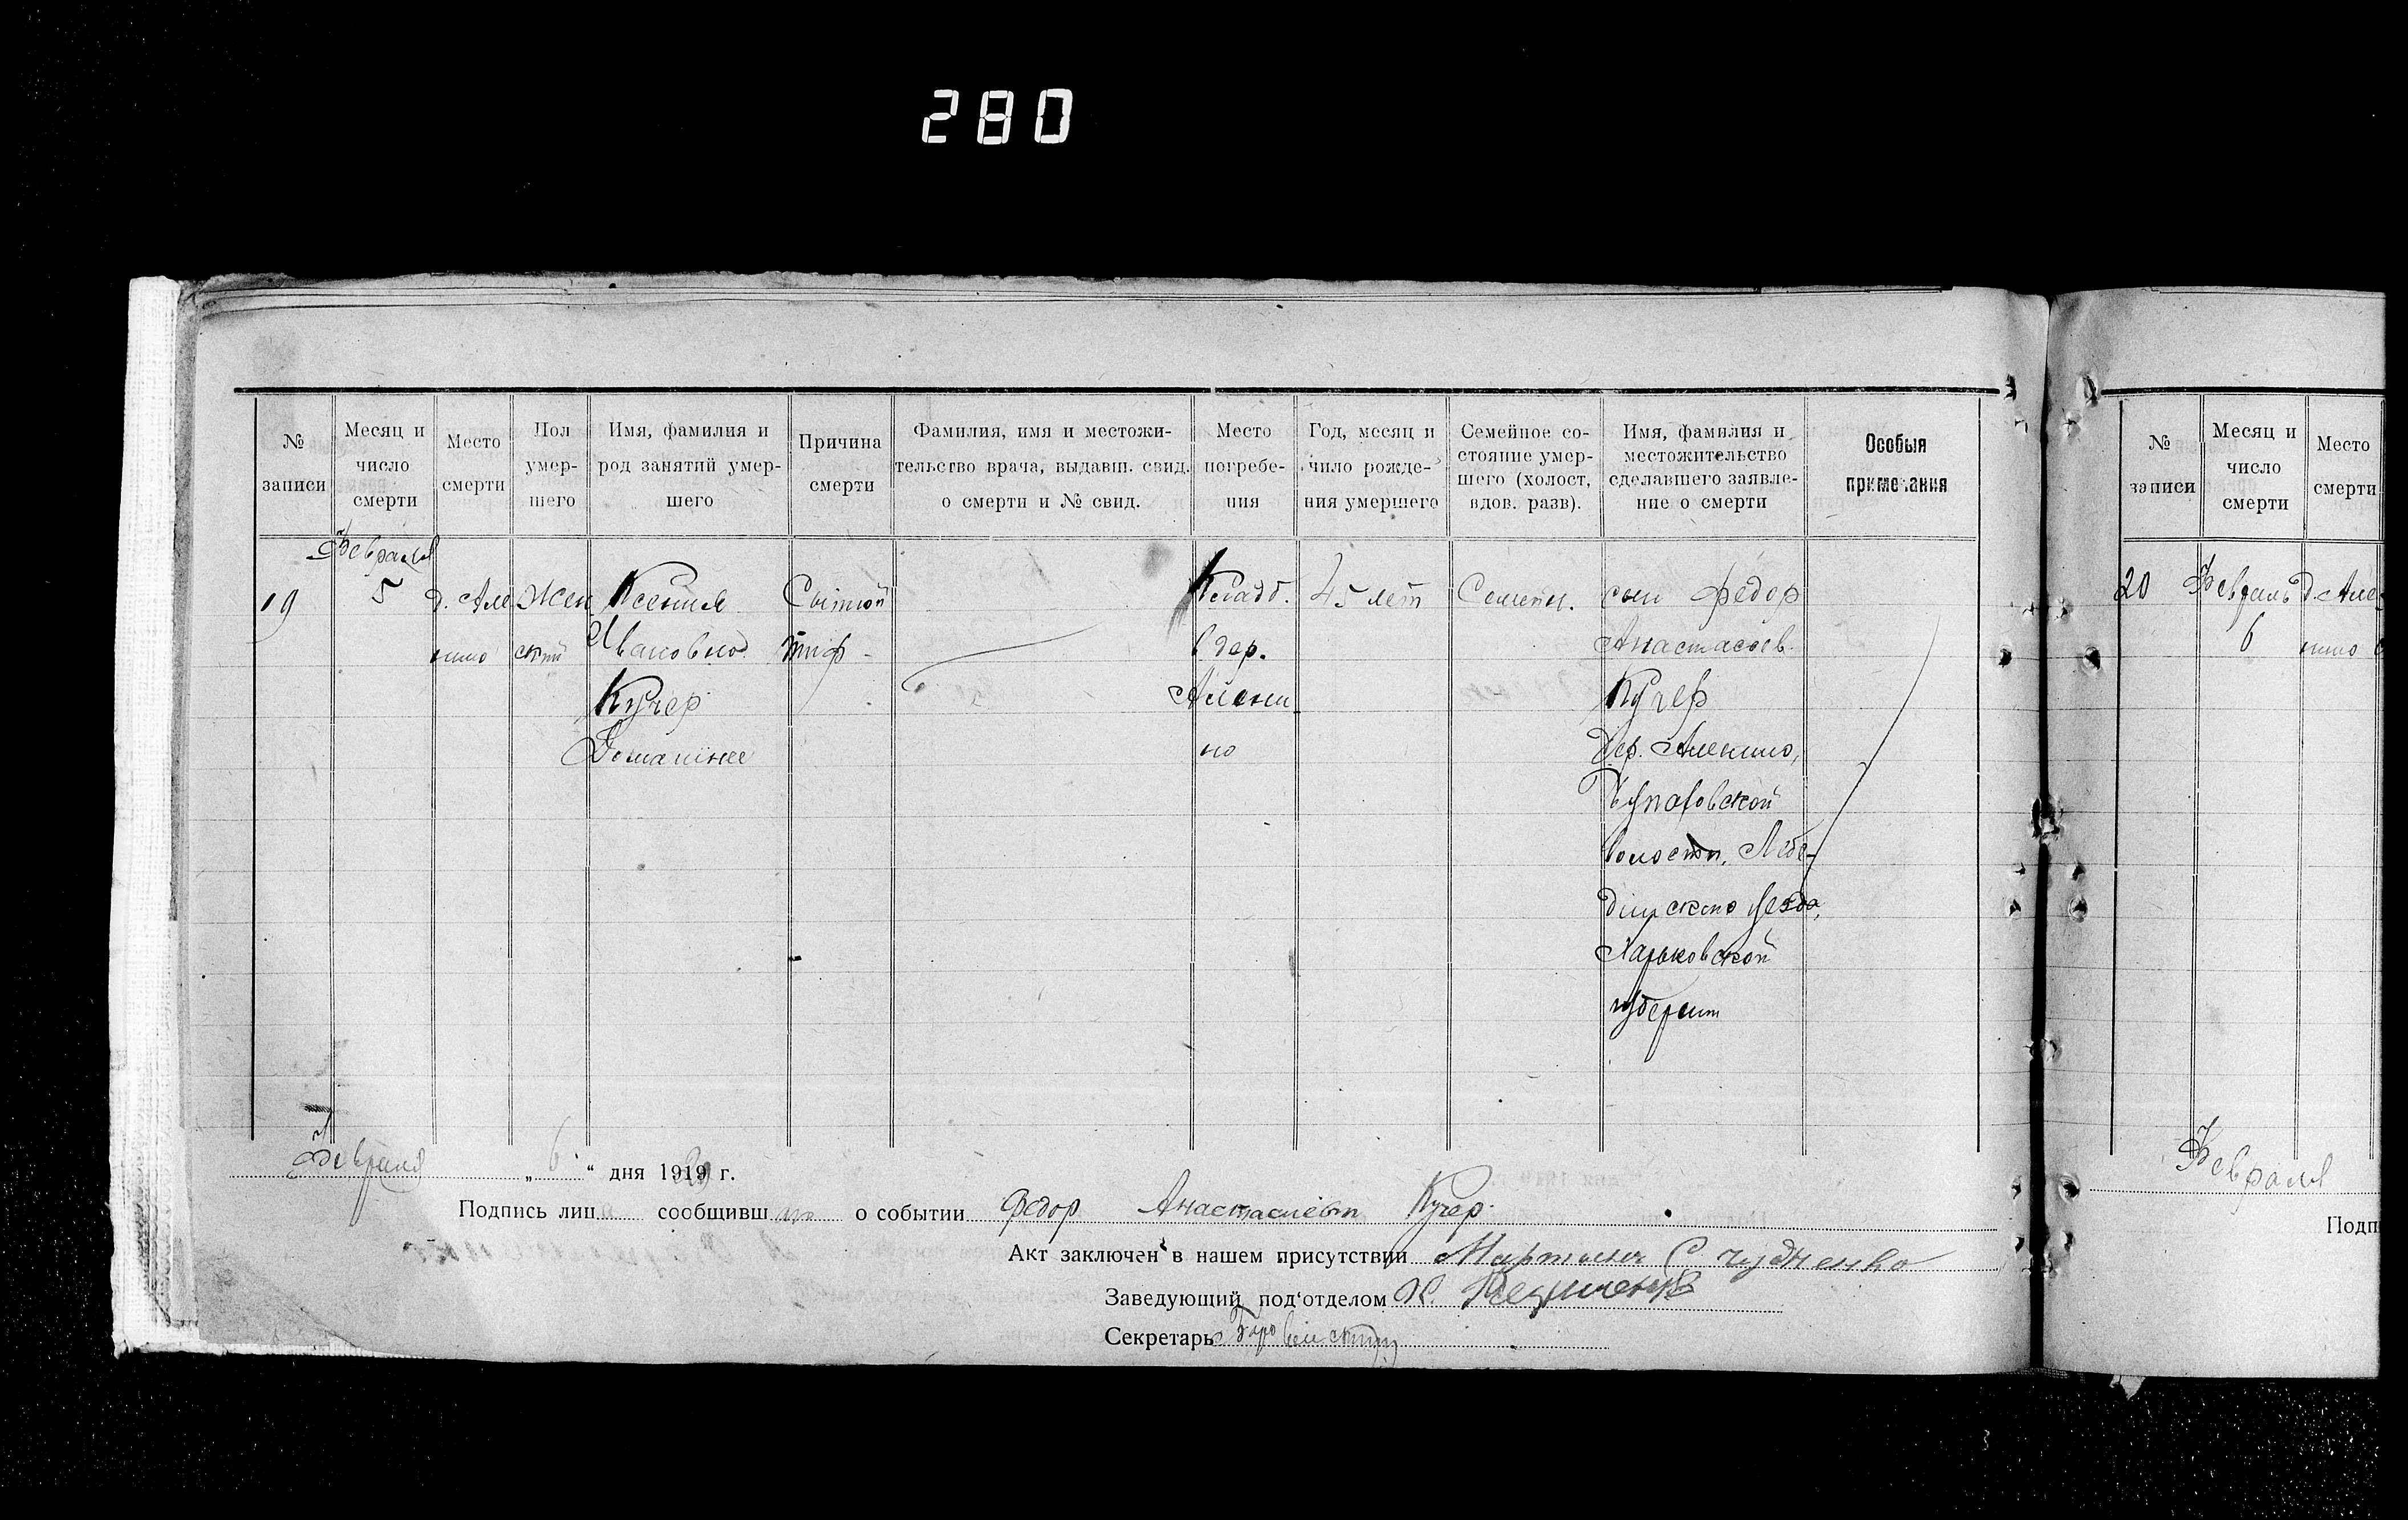 280
№ записи
Месяц и число смерти
Место смерти
Пол умер- шего
Имя, фамилия и род занятий умер- шего
Причина смерти
Фамилия, имя и местожи- тельство врача, выдавш. свид. о смерти и № свид.
Место погребе- ния
Год, месяц и число рожде- ния умершего
Семейное со- стояние умер- шего (холост, вдов. разв).
Имя, фамилия и местожительство сделавшего заявле- ние о смерти
Особыя примечания
19
Февраля
5
д. Але
нино
Жен
ский
Ксения
Ивановна
Кучер
Домашнее
Сыпной
тиф
Кладб.
в дер.
Алени-
но
45 лет
Семейн.
сын Федор
Анастасьев.
Кучер
Дер. Аленино,
волости, Лебе-
динского уезда,
Харьковской
губернии
Февраля „ 6 “ дня 1919 г.
Подпись лица сообщивш о событии Федор Анастасиевич Кучер.
Акт заключен в нашем присутствии
Заведующий под'отделом К.
Секретарь
№ записи
Месяц и число смерти
Место смерти
20
Февраль
6
д. Але-
нино
Февраля
Подп